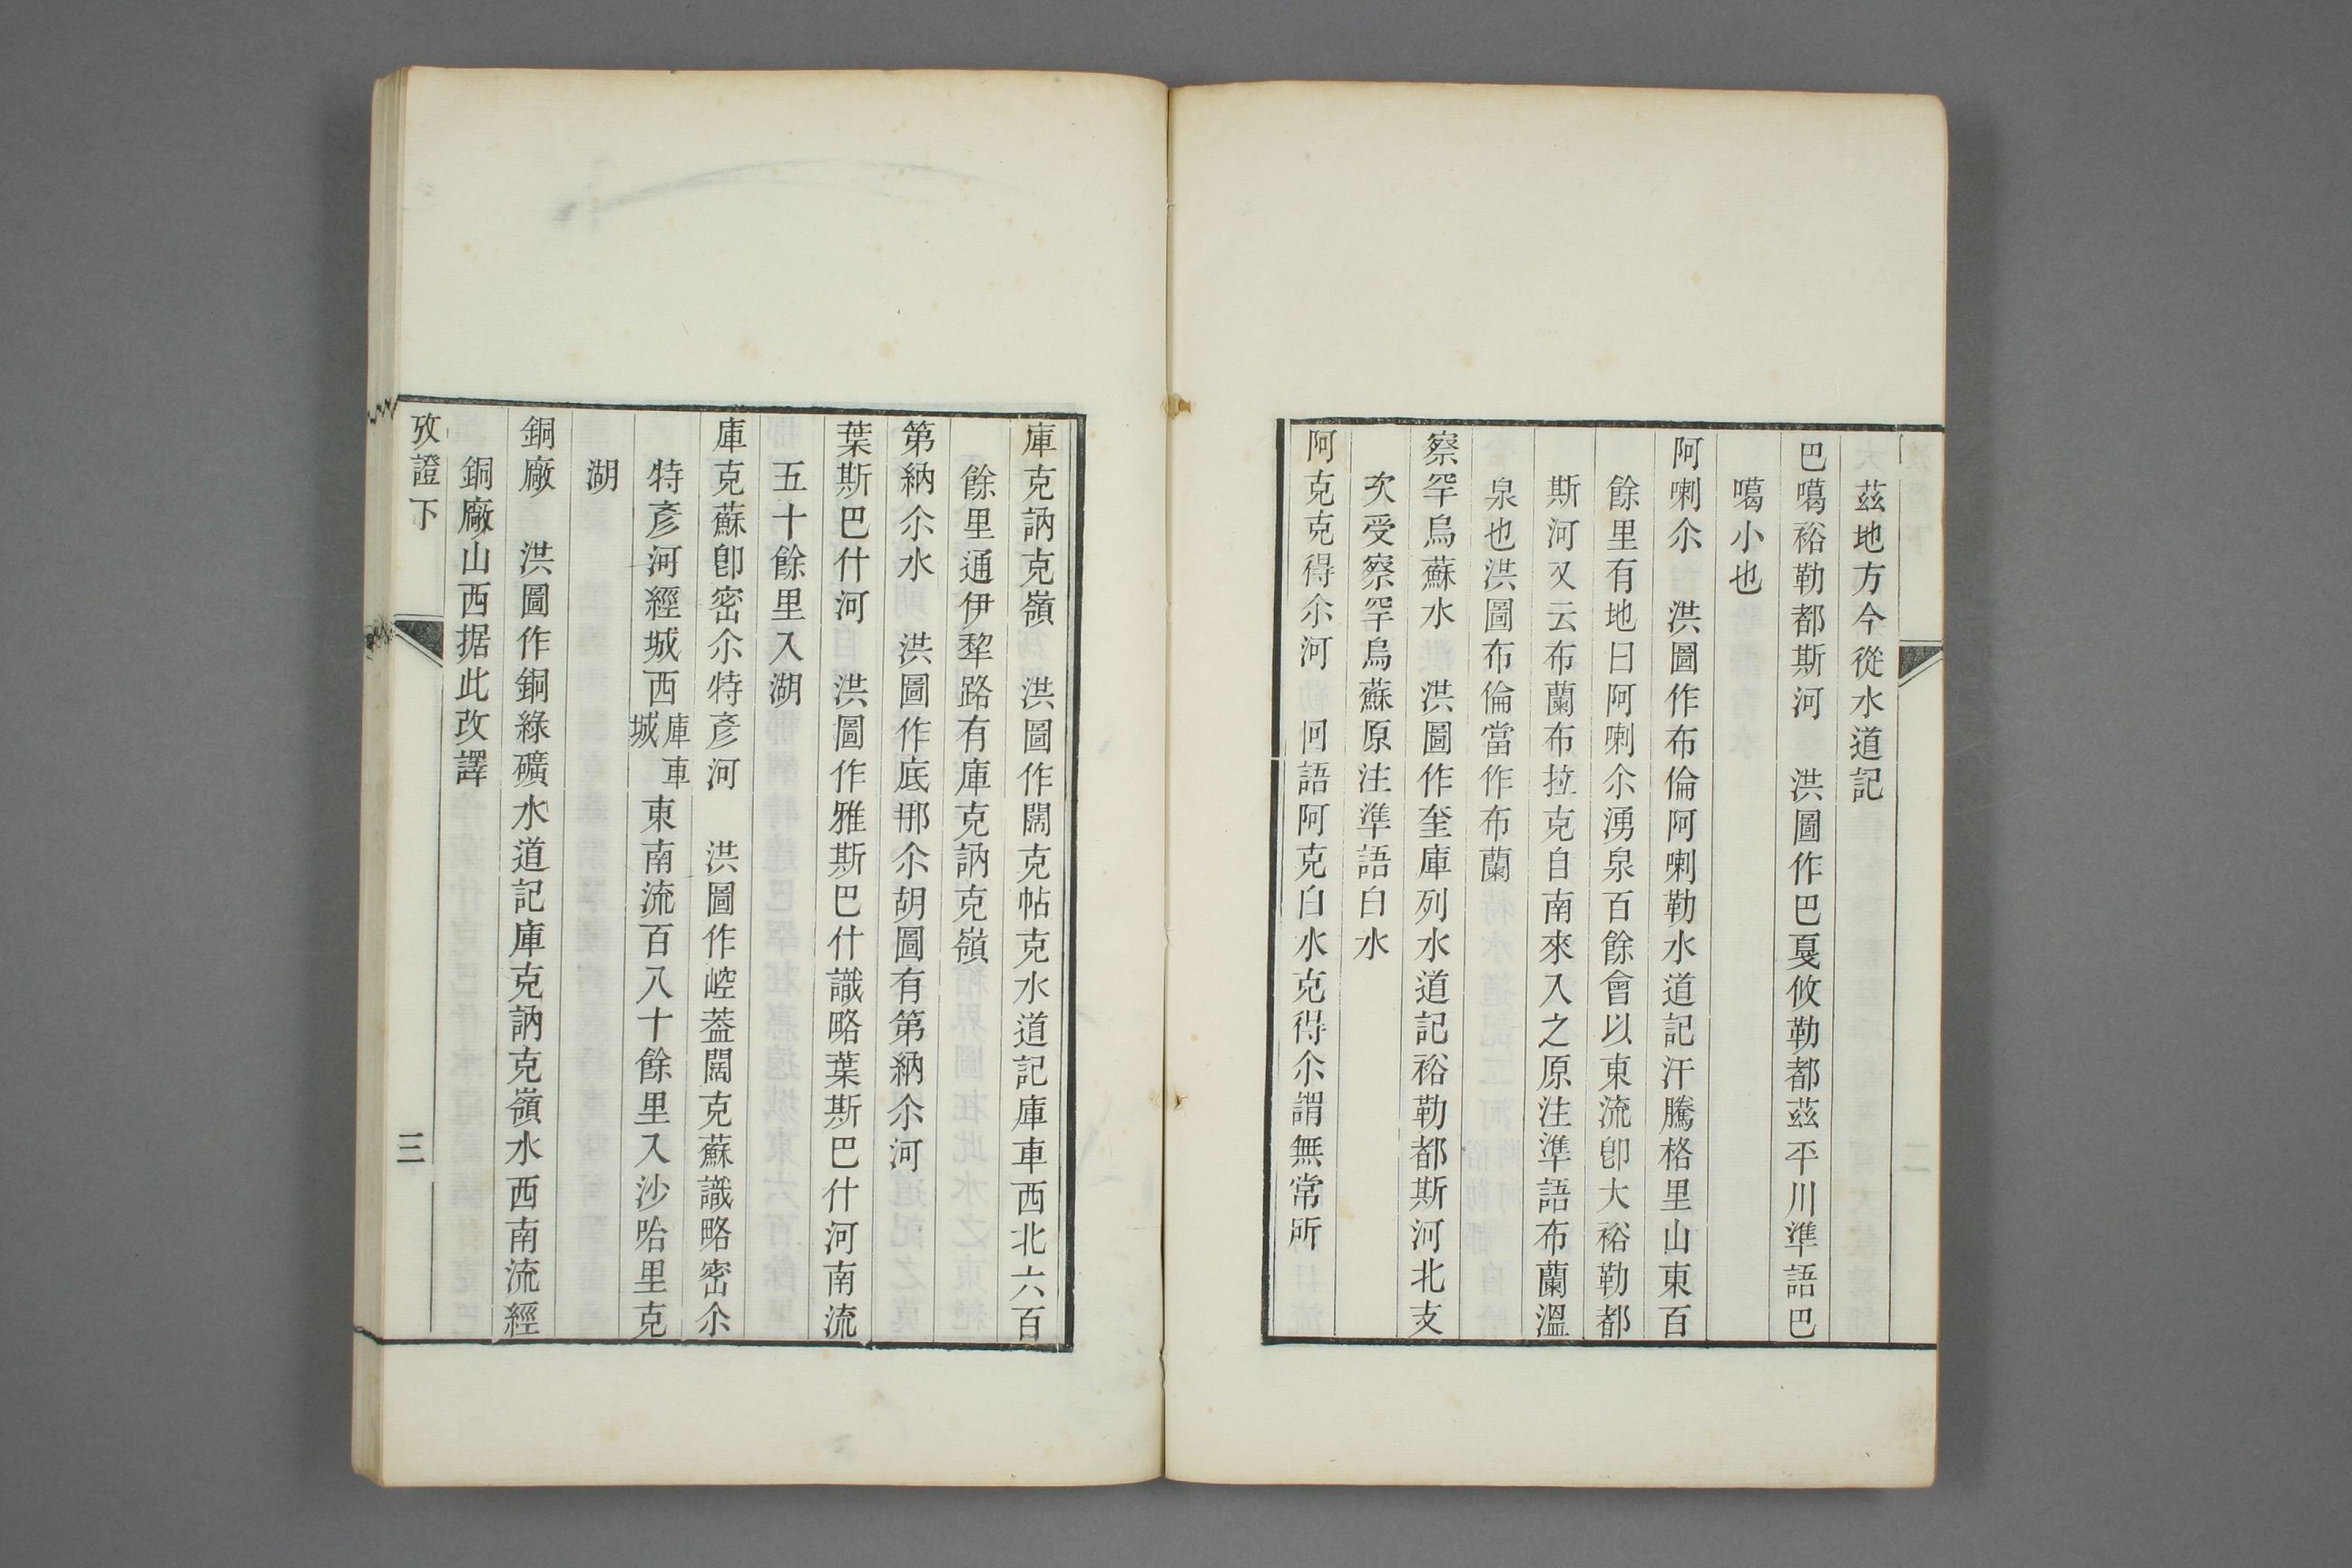 茲地方今從水道記
巴噶裕勒都斯河　洪圖作巴戛攸勒都茲平川準語巴
噶小也
阿喇尒　洪圖作布倫阿喇勒水道記汗騰格里山東百
餘里有地曰阿喇尒湧泉百餘會以東流卽大裕勒都
斯河又云布蘭布拉克自南來入之原注準語布蘭溫
泉也洪圖布倫當作布蘭
察罕烏蘇水　洪圖作奎庫列水道記裕勒都斯河北支
次受察罕烏蘇原注準語白水
阿克克得尒河　回語阿克白水克得尒謂無常所
庫克訥克嶺　洪圖作闊克帖克水道記庫車西北六百
餘里通伊犂路有庫克訥克嶺
第納尒水　洪圖作底那尒胡圖有第納尒河
葉斯巴什河　洪圖作雅斯巴什識略葉斯巴什河南流
五十餘里入湖
庫克蘇卽密尒特彥河　洪圖作崆葢闊克蘇識略密尒
特彥河經城西庫車城東南流百八十餘里入沙哈里克
湖
銅廠　洪圖作銅綠礦水道記庫克訥克嶺水西南流經
銅廠山西据此改譯
攷證下
三